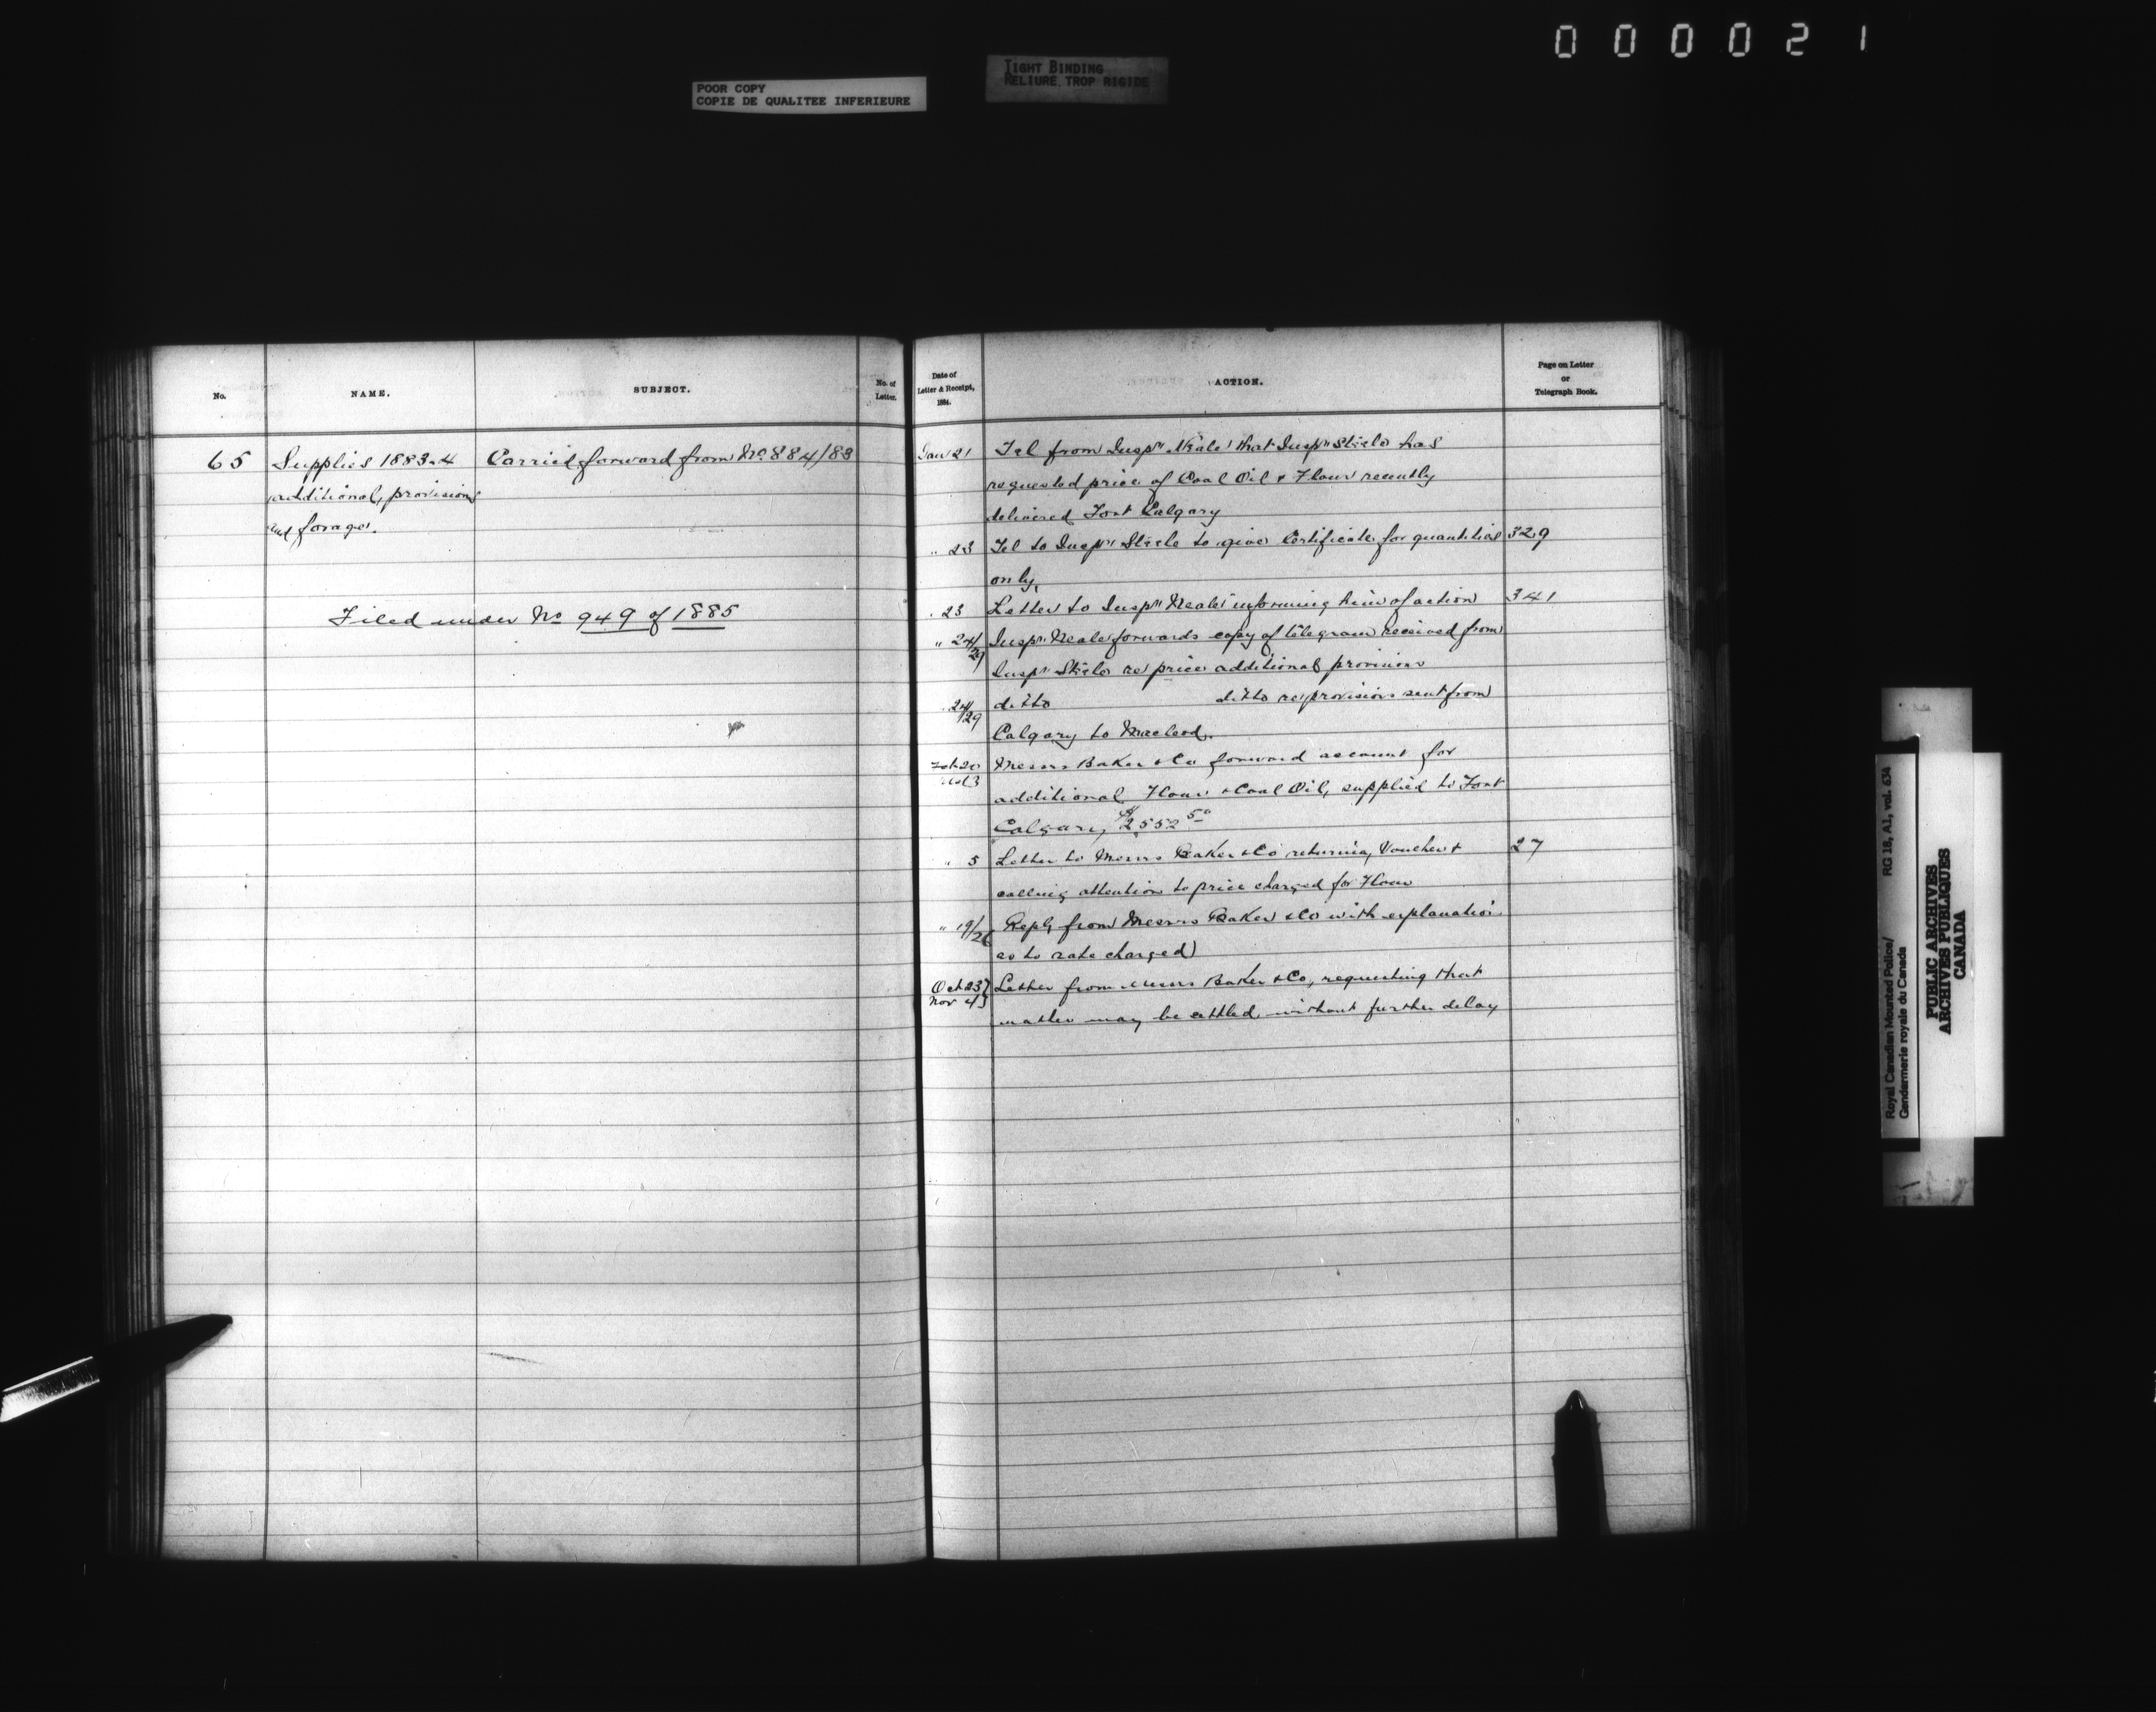 000021
POOR COPY
COPIE DE QUALITEE INFERIEURE
TIGHT BINDING
RELIURE TROP RIGIDE
No.
NAME.
SUBJECT.
No. of
Letter.
Date of
Letter & Receipt,
1884.
ACTION.
Page on Letter
or
Telegraph Book.
65 Supplies 1883.4 Carried forward from No. 884/83
additional, provisions
and forage.
Filed under No 949 of 1885
Jan 21 Tel from Inspr Neale that Inspr Steele has
requested price of Coal Oil & Flour recently
delivered Fort Calgary
" 23 Tel to Inspr Steele to give Certificate for quantities 329
only,
" 23 Letter to Inspr Neale informing him of action 341
" 24/29 Inspr Neale forwards copy of telegram received from
Inspr Steele re price additional provisions
" 24/29 ditto ditto re provisions sent from
Calgary to Macleod.
Feb 20 Messrs Baker & Co forward account for
additional Flour & Coal Oil, supplied to Fort
Calgary, $2552 50
" 5 Letter to Messrs Baker & Co returning Voucher & 27
calling attention to price charged for Flour
" 19/26 Reply from Messrs Baker & Co with explanation
as to rate charged
Oct 23 } Letter from Messrs Baker & Co, requesting that
Nov 4 } matter may be settled without further delay
Royal Canadian Mounted Police/
Gendarmerie royale du Canada
RG 18, A1, vol. 634
PUBLIC ARCHIVES
ARCHIVES PUBLIQUES
CANADA